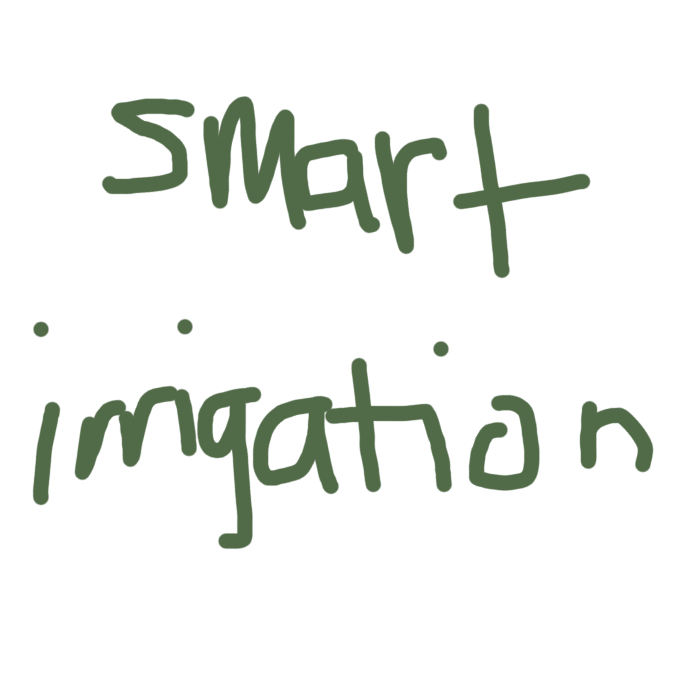 smart
irrigation